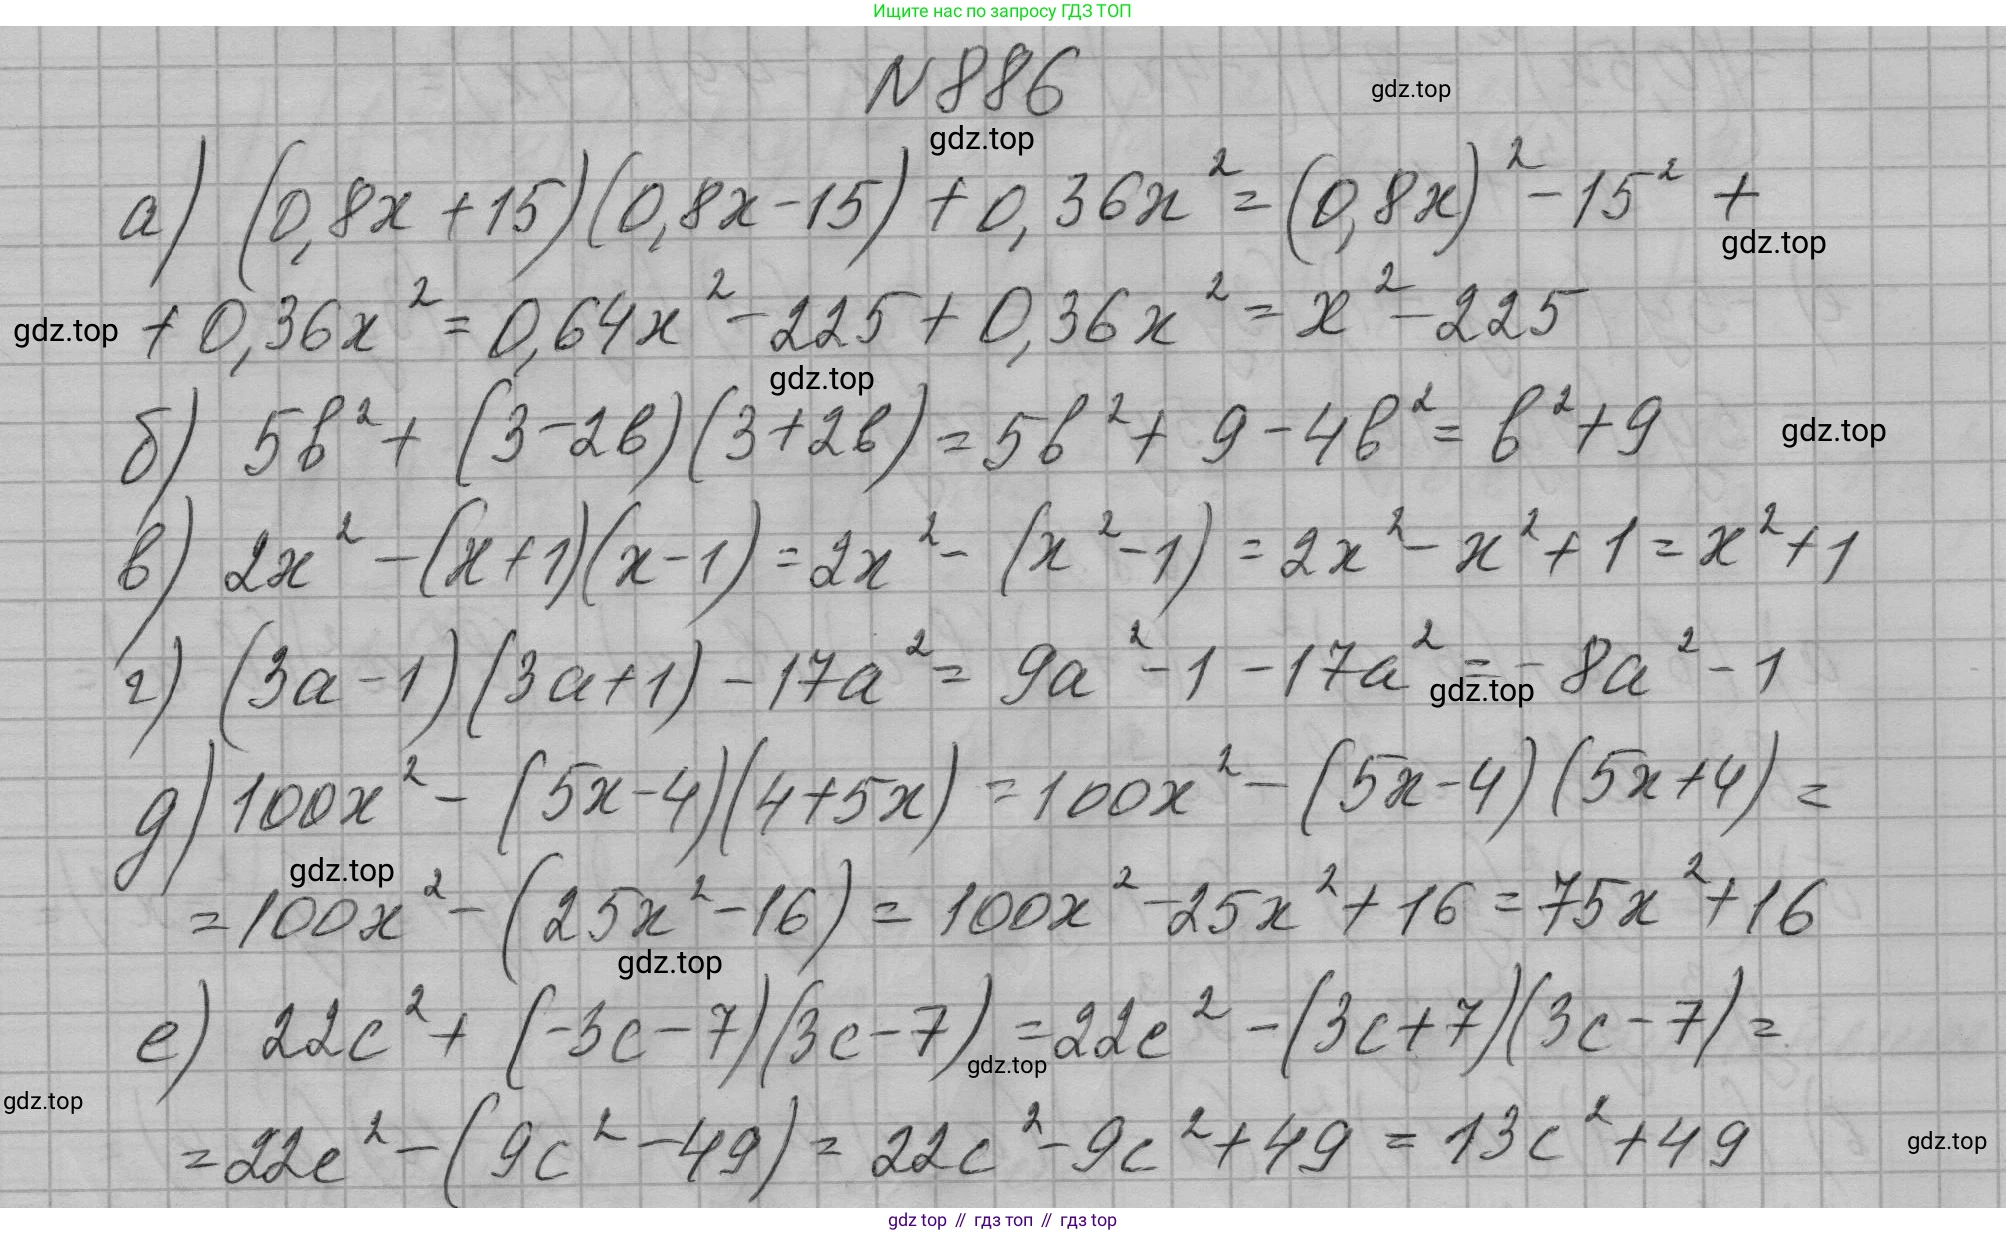 Ищите нас по запросу ГДЗ ТОП
N 886
gdz.top
gdz.top
а) (0,8x + 15)(0,8x - 15) + 0,36x² = (0,8x)² - 15² +
gdz.top
gdz.top
+ 0,36x² = 0,64x² - 225 + 0,36x² = x² - 225
gdz.top
б) 5b² + (3 - 2b)(3 + 2b) = 5b² + 9 - 4b² = b² + 9
gdz.top
в) 2x² - (x + 1)(x - 1) = 2x² - (x² - 1) = 2x² - x² + 1 = x² + 1
г) (3a - 1)(3a + 1) - 17a² = 9a² - 1 - 17a² = - 8a² - 1
gdz.top
д) 100x² - (5x - 4)(4 + 5x) = 100x² - (5x - 4)(5x + 4) =
gdz.top
= 100x² - (25x² - 16) = 100x² - 25x² + 16 = 75x² + 16
gdz.top
е) 22c² + (-3c - 7)(3c - 7) = 22c² - (3c + 7)(3c - 7) =
gdz.top
gdz.top
= 22c² - (9c² - 49) = 22c² - 9c² + 49 = 13c² + 49
gdz.top
gdz top // гдз топ // гдз top